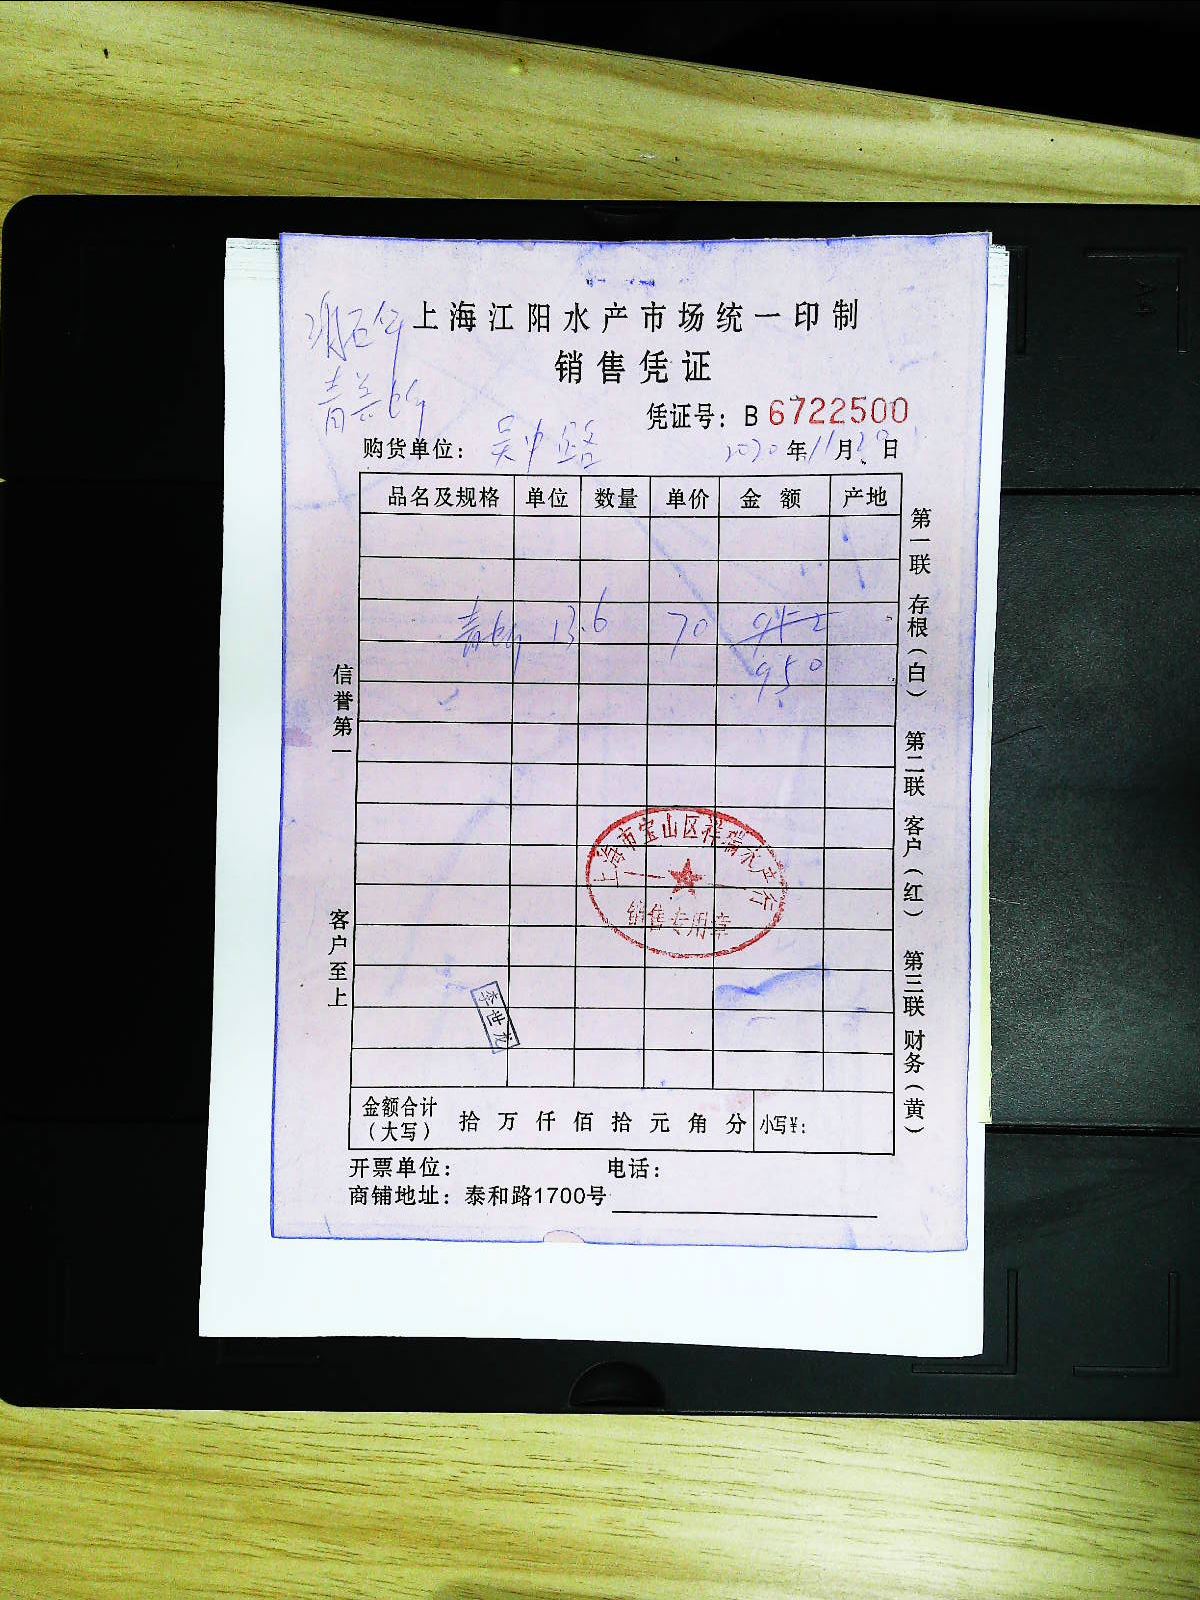 上海江阳水产市场统一印制
销售凭证
凭证号：B 6722500
青羔蛤
购货单位：吴中路 2020年11月2日
品名及规格 单位 数量 单价 金额 产地
青蛤 13.6 70 952
950
第一联 存根（白） 第二联 客户（红） 第三联 财务（黄）
信誉第一
客户至上
上海市宝山区祥瑞水产行
销售专用章
李世龙
金额合计（大写） 拾 万 仟 佰 拾 元 角 分 小写¥：
开票单位： 电话：
商铺地址：泰和路1700号